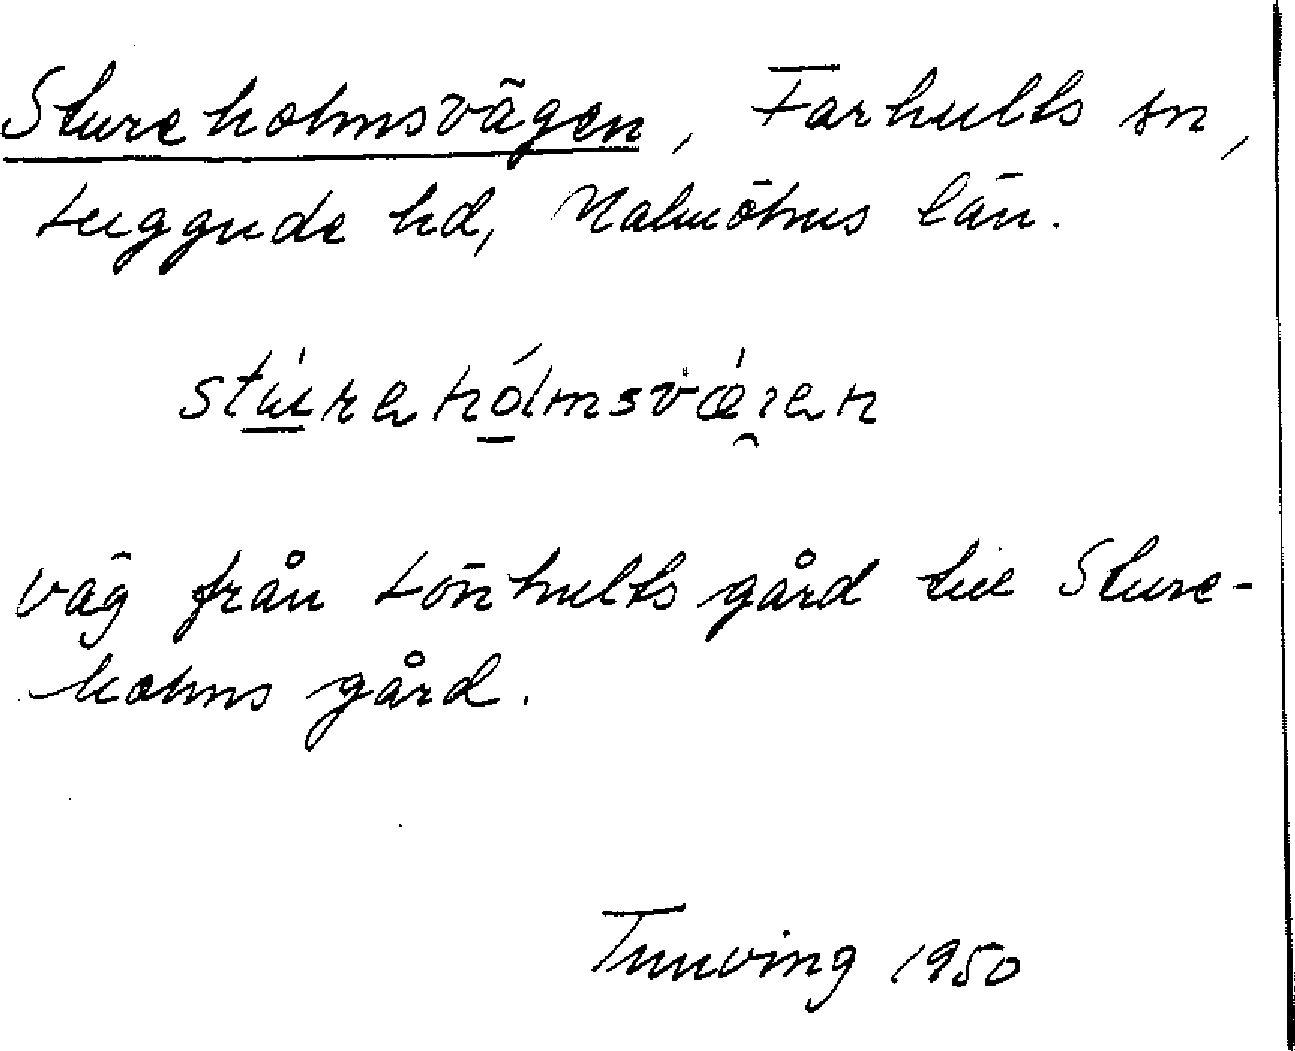 Stureholmsvägen, Farhults sn,
Luggude hd, Malmöhus län.
stúrehólmsvǽren
väg från Lönhults gård till Sture-
holms gård.
Tunving 1950